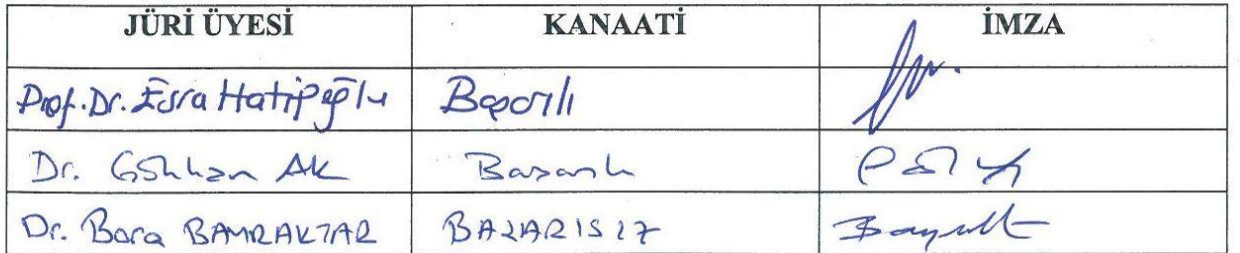 JÜRİ ÜYESİ KANAATİ İMZA
Prof. Dr. Esra Hatipoğlu Başarılı
Dr. Gökhan Ak Başarılı
Dr. Bora BAYRAKTAR BAŞARISIZ